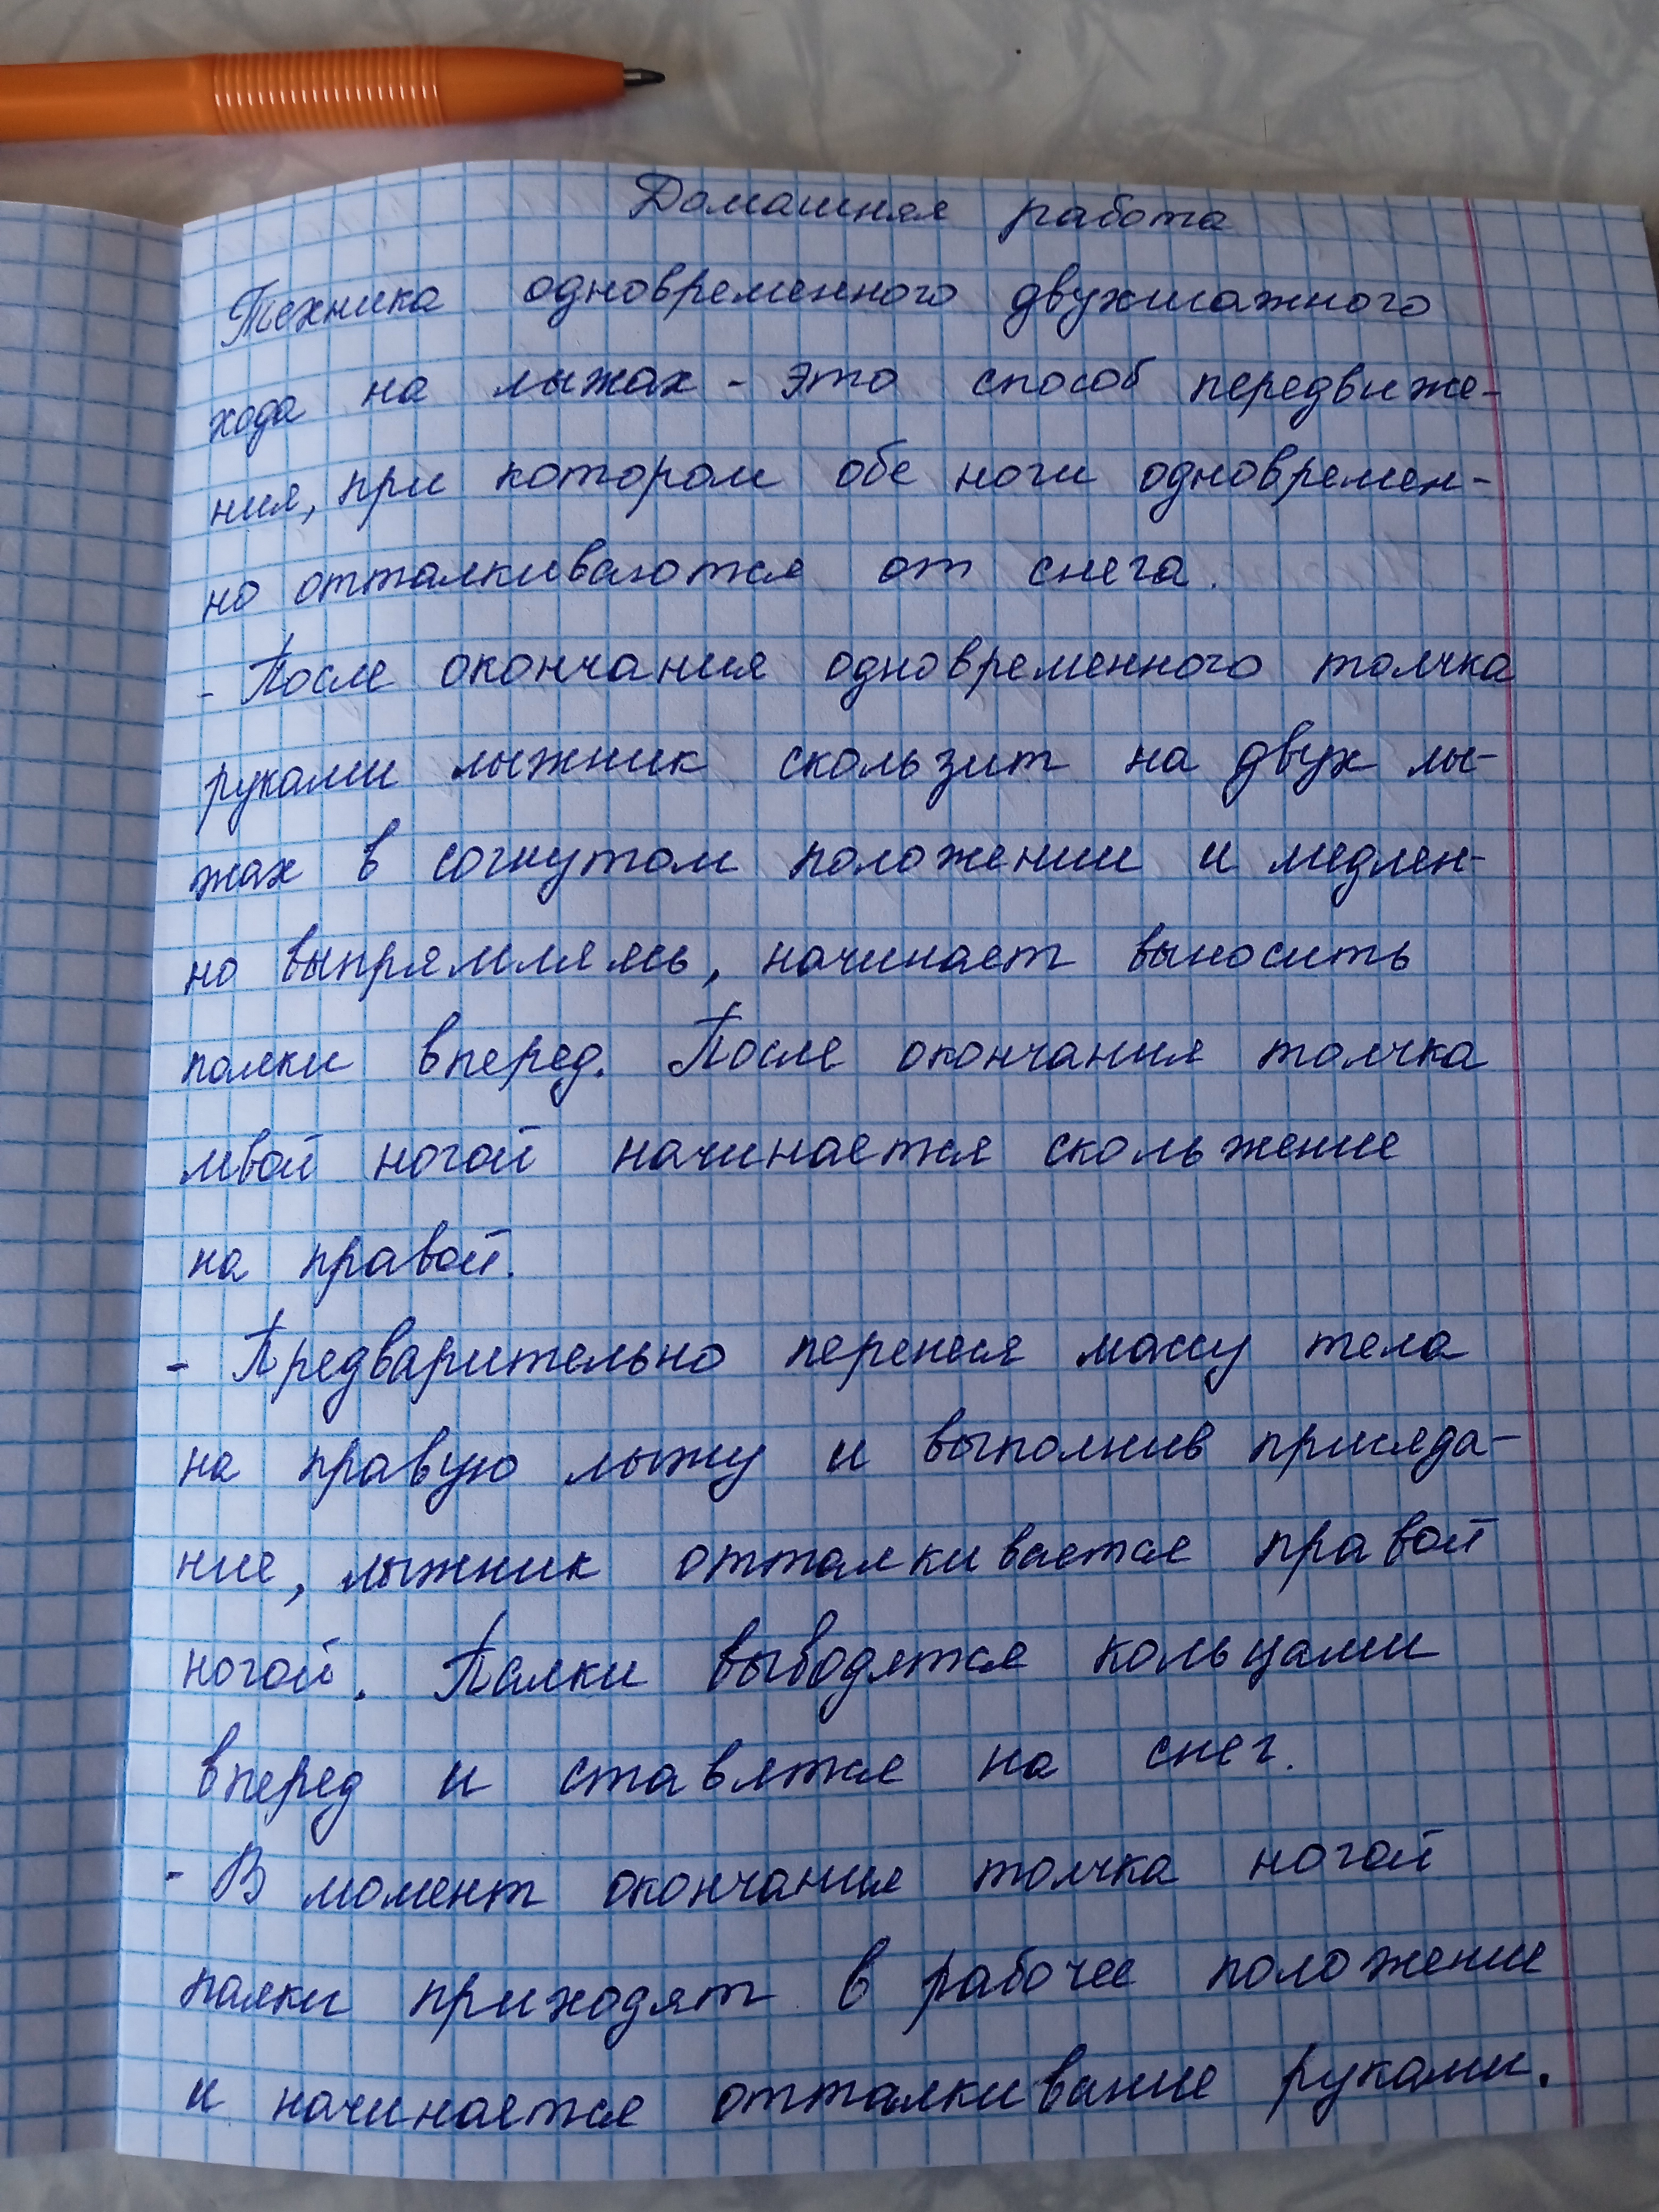 Домашняя работа
Техника одновременного двухшажного
хода на лыжах - это способ передвиже-
ния, при котором обе ноги одновремен-
но отталкиваются от снега.
- После окончания одновременного толчка
руками лыжник скользит на двух лы-
жах в согнутом положении и медлен-
но выпрямляясь, начинает выносить
палки вперед. После окончания толчка
левой ногой начинается скольжение
на правой.
- Предварительно перенеся массу тела
на правую лыжу и выполнив приседа-
ние, лыжник отталкивается правой
ногой. Палки выводятся кольцами
вперед и ставятся на снег.
- В момент окончания толчка ногой
палки приходят в рабочее положение
и начинается отталкивание руками.